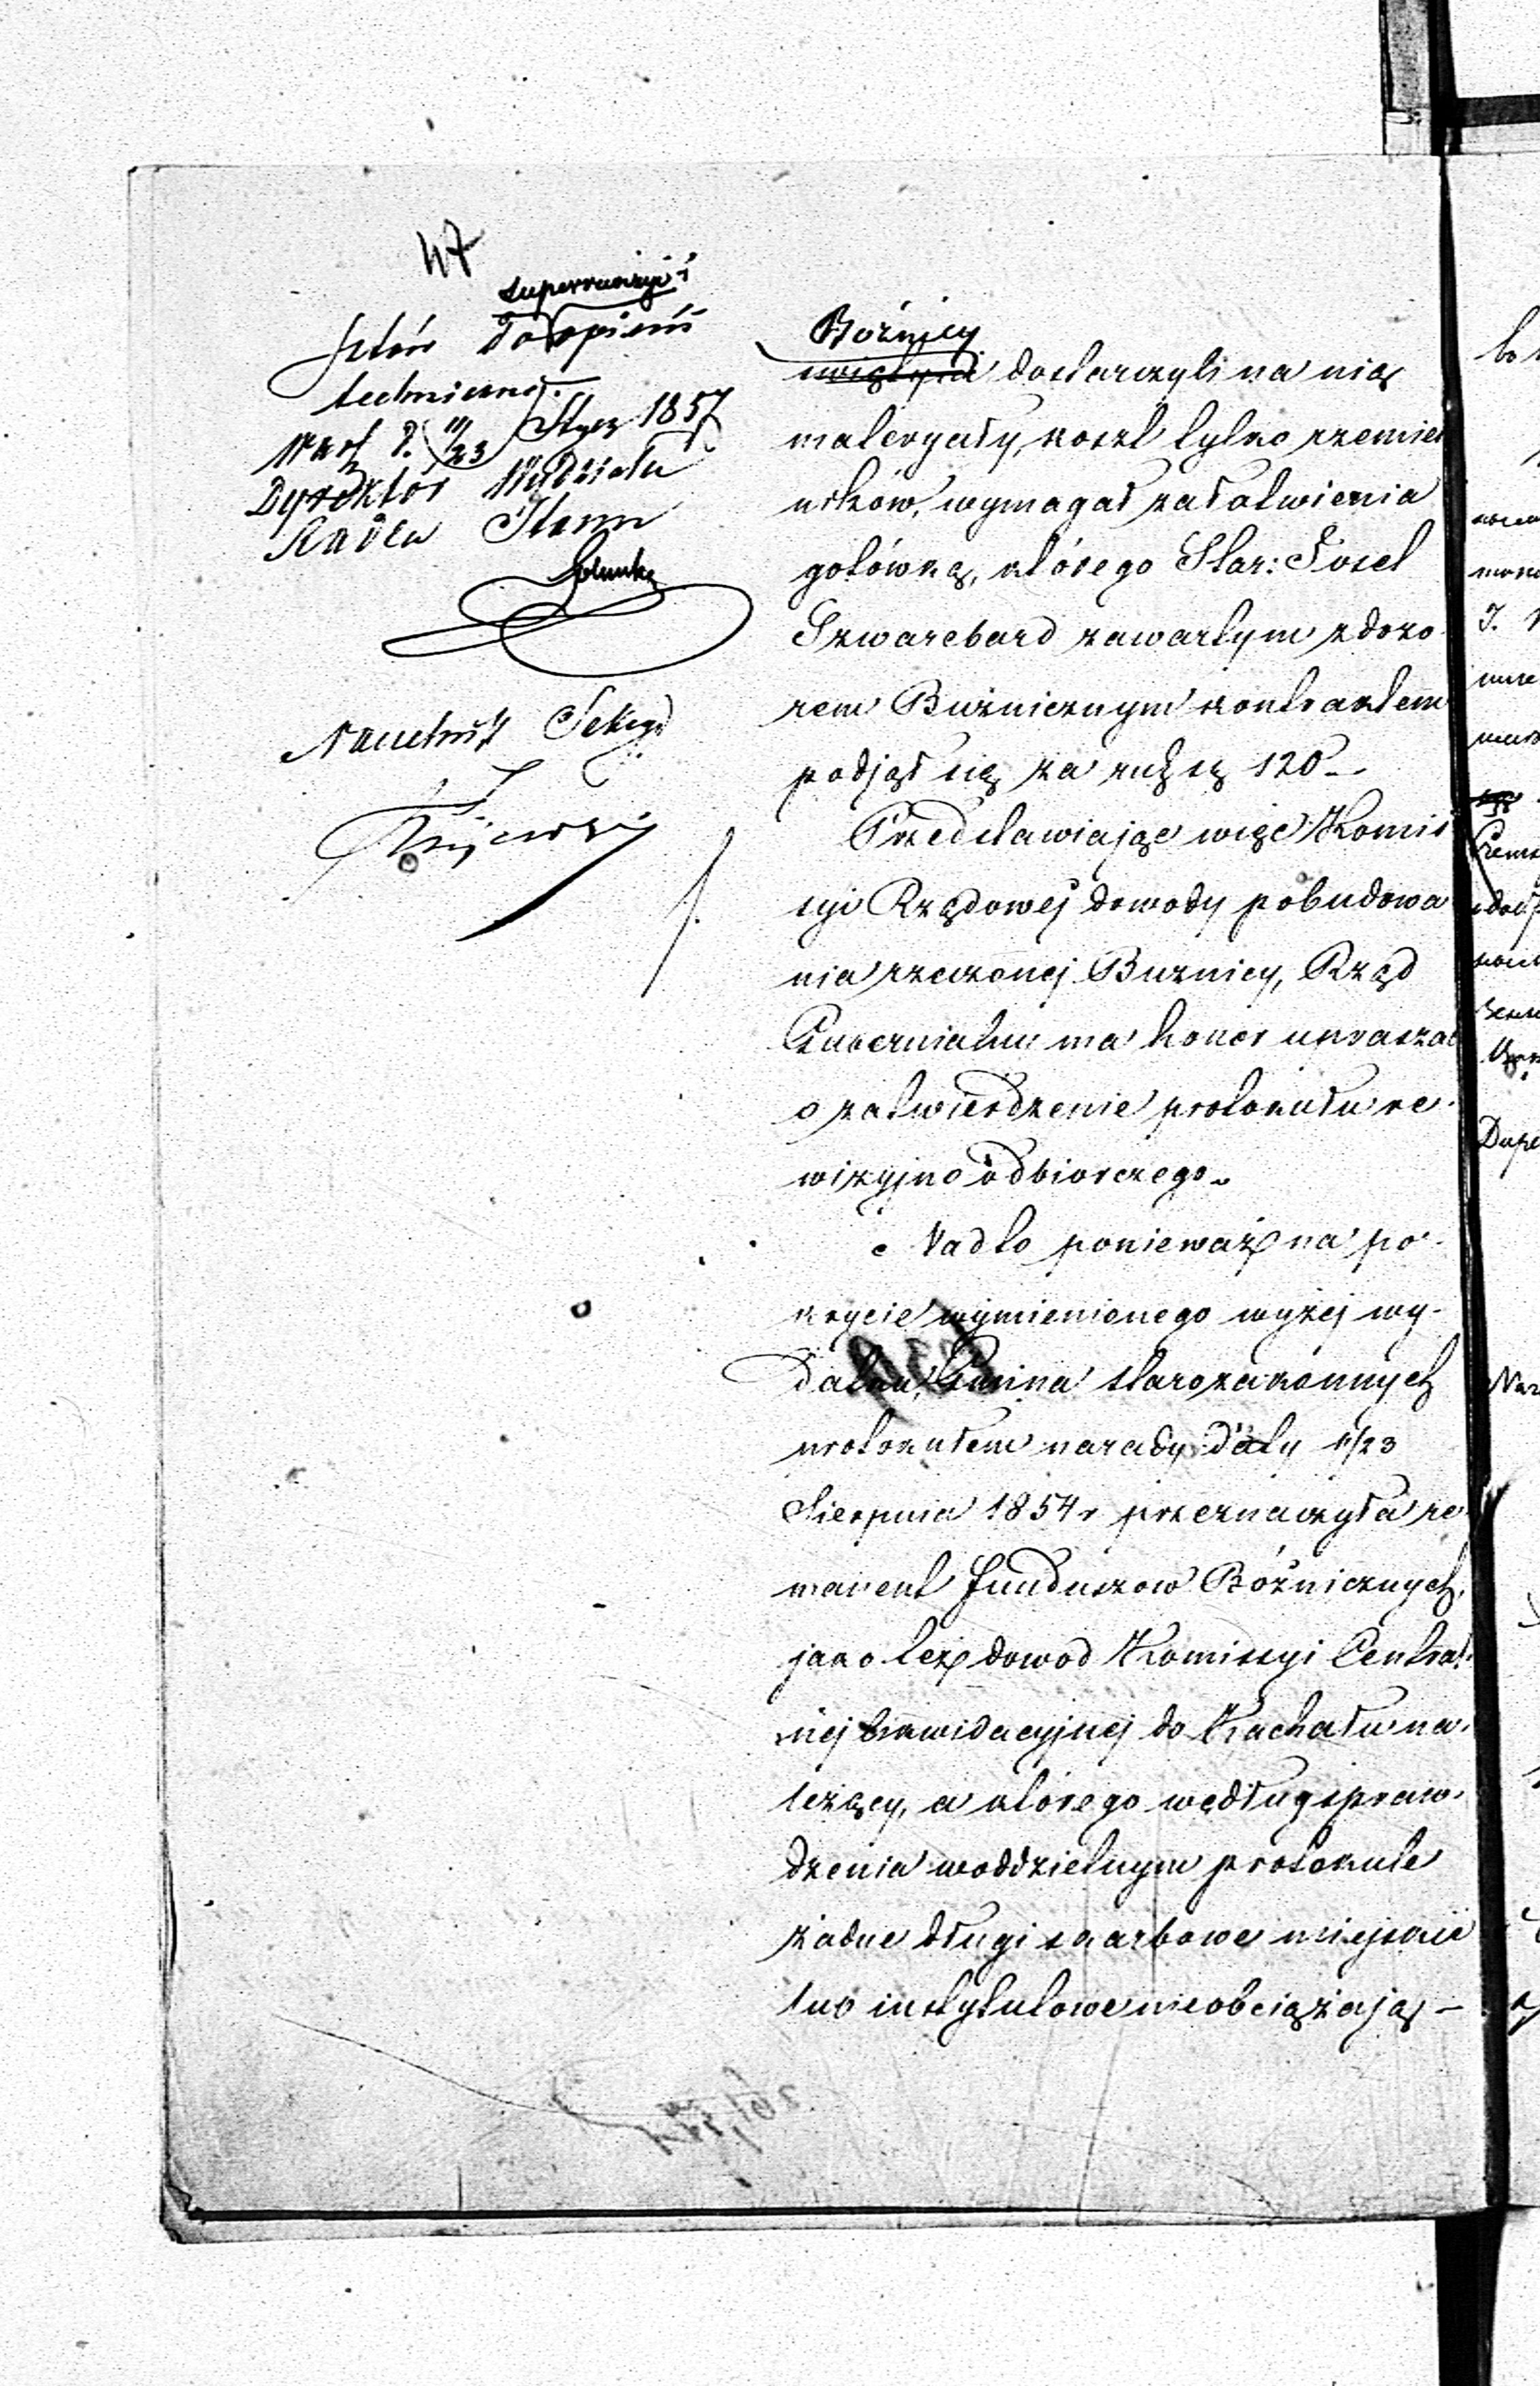 47
superrewizyi i
do opinii
technicznej.
Warsz. d. 11/23 Stycz 1857
Dyrektor Wydziału
Radca Stanu
Naczelnik Sekcyi
Bóźnicy
świątyni dostarczyli na nią
materyały, koszt tylko rzemieś
ników, wymagał załatwienia
gotówką, którego Star: Josel
Szwarcbard zawartym z dozo
rem Bużnicznym kontraktem
podjął się za rub. sr. 120 –
Przedstawiając więc Komis
syi Rządowej dowody pobudowa
nia rzeczonej Buznicy, Rząd
Gubernialny ma honor upraszać
o zatwierdzenie protokułu re-
wizyjno odbiorczego.
Nadto ponieważ na po-
krycie wymienionego wyżej wy-
datku, Gmina starozakonnych
protokułem narady daty 11/23
Sierpnia 1854 r przeznaczyła re
manent funduszow Bóżnicznych,
jako też dowod Komissyi Central-
nej Likwidacyjnej do Kachału na-
leżący, a którego według spraw-
dzenia w oddzielnym protokule
żadne długi skarbowe miejskie
lub instytutowe nieobciążają –